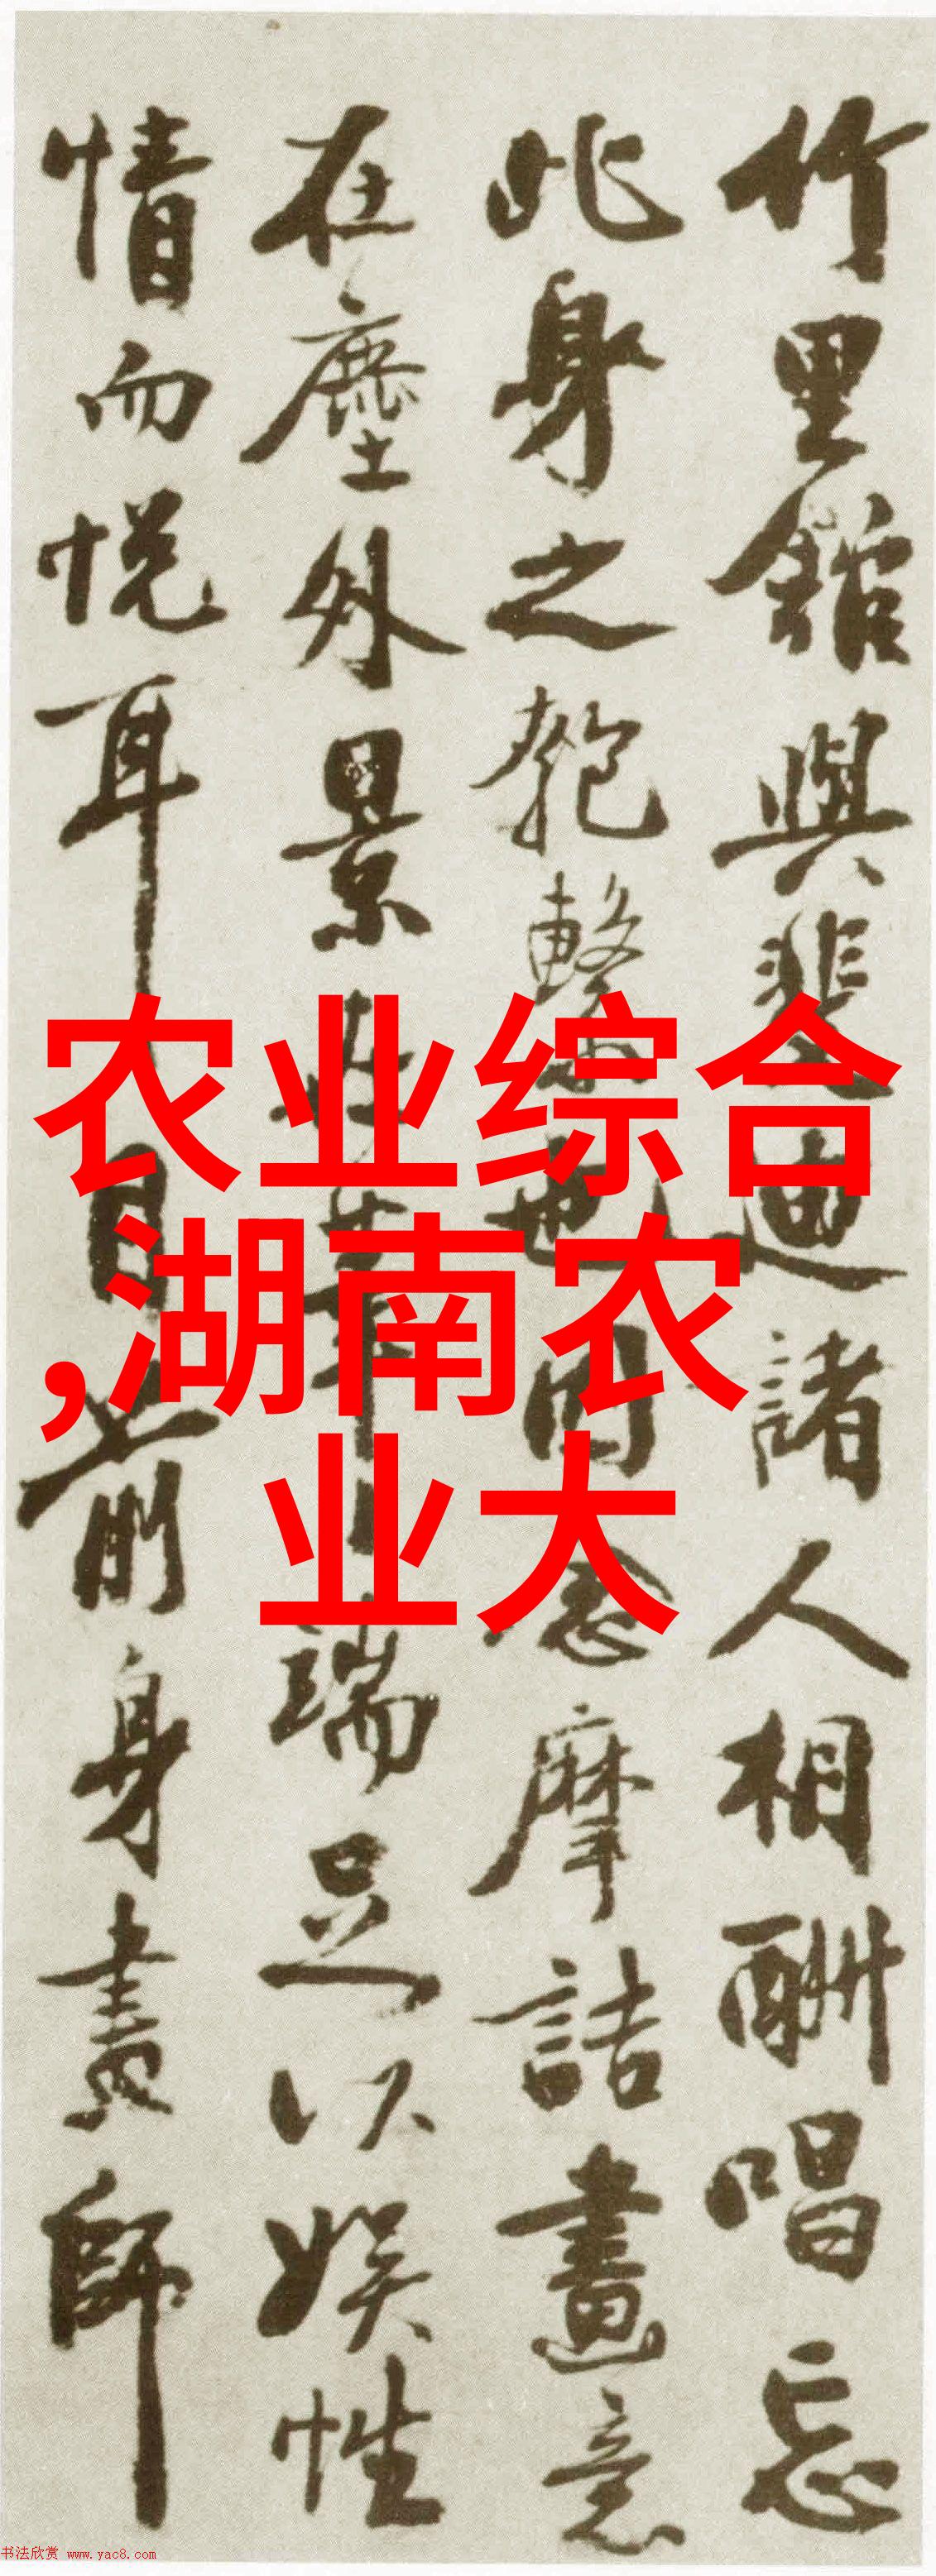 竹里館與裴迪諸人相酬唱忘
此身之匏繫也因念摩詰畫意
在塵外景在筆端足以娛性
情而悦耳目前身畫師
农业综合
,湖南农
业大
书法欣赏 www.yac8.com